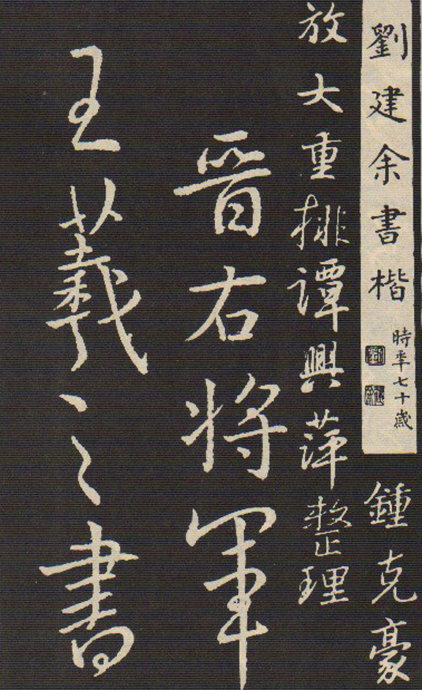 劉建余書楷
時年七十歲
鍾克豪
放大重排譚興萍整理
晋右将軍
王羲之書